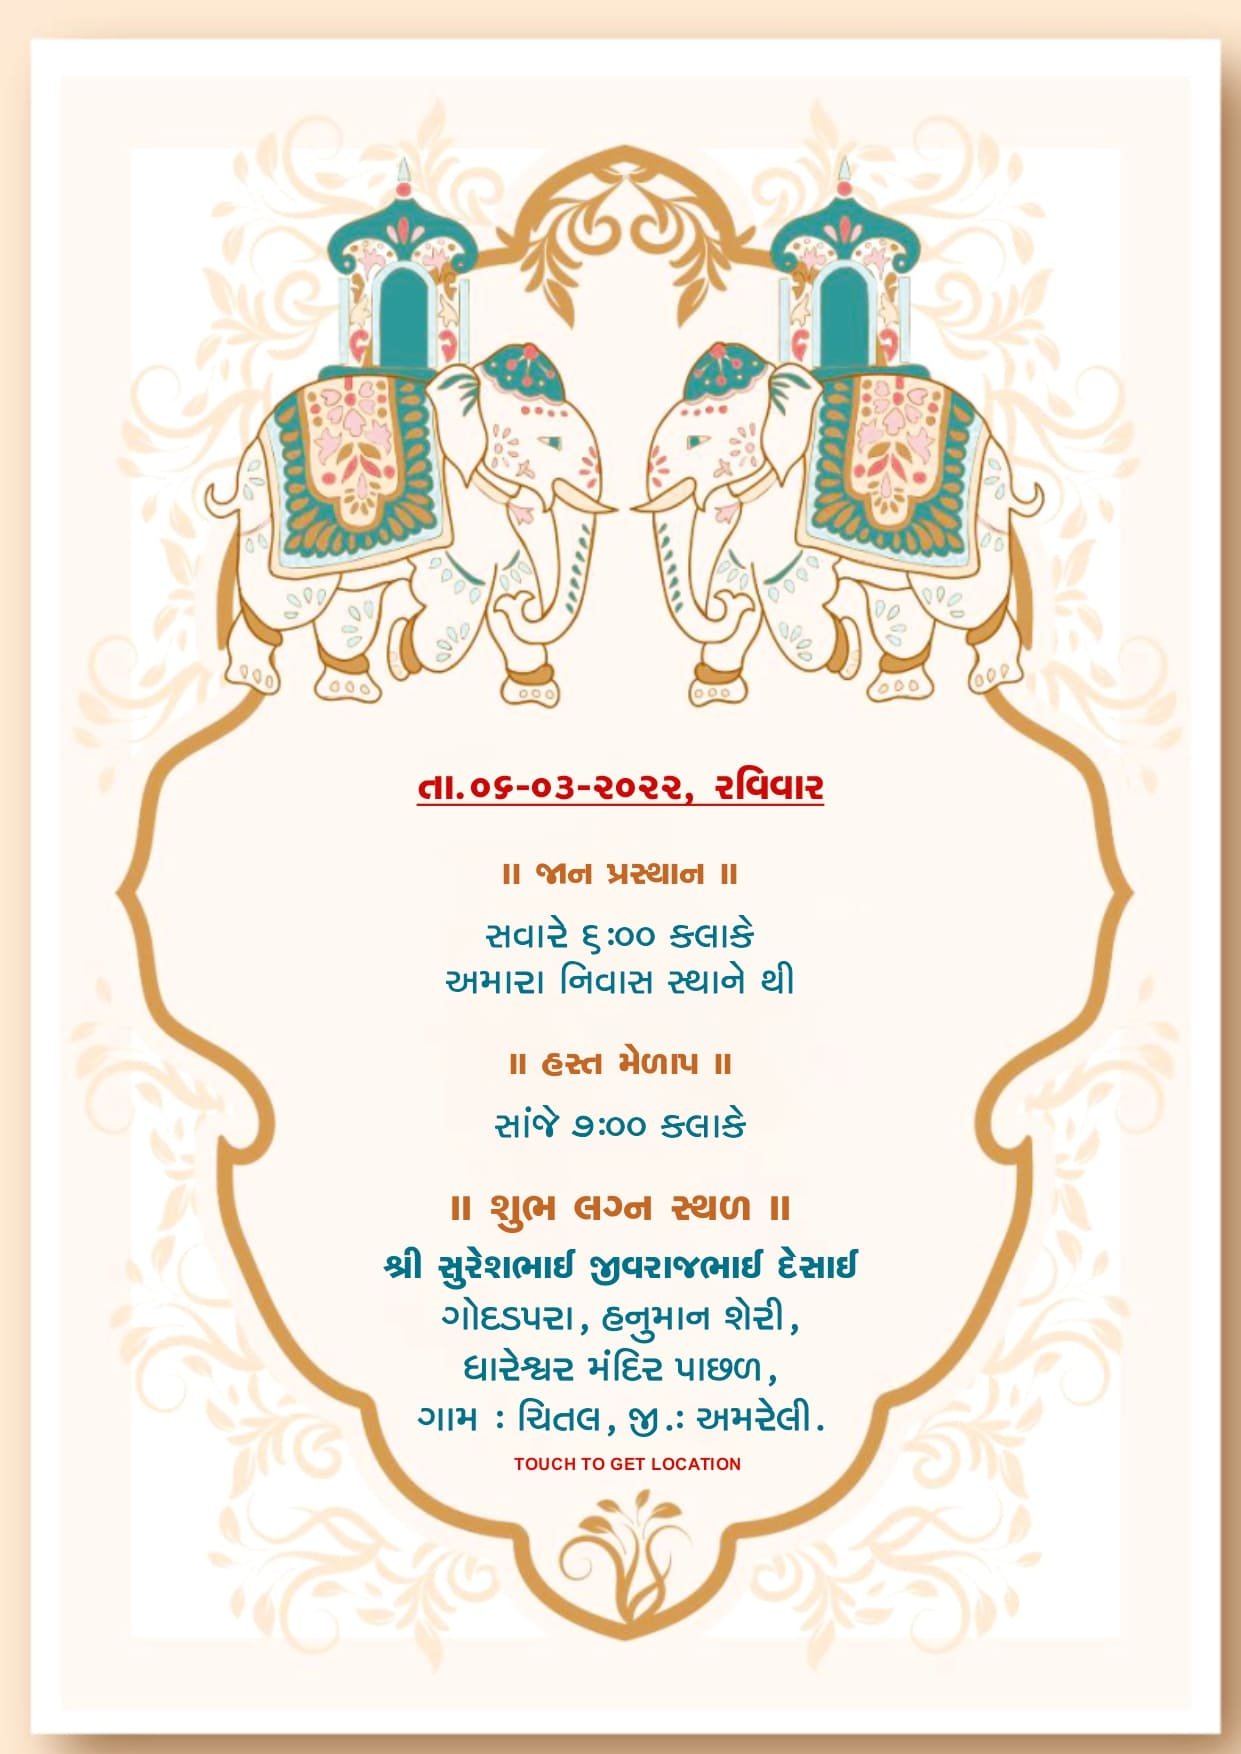 તા.૦૬-૦૩-૨૦૨૨, રવિવાર
॥ જાન પ્રસ્થાન ॥
સવારે ૬:૦૦ કલાકે
અમારા નિવાસ સ્થાને થી
॥ હસ્ત મેળાપ ॥
સાંજે ૭:૦૦ કલાકે
॥ શુભ લગ્ન સ્થળ ॥
શ્રી સુરેશભાઈ જીવરાજભાઈ દેસાઈ
ગોદડપરા, હનુમાન શેરી,
ધારેશ્વર મંદિર પાછળ,
ગામ : ચિતલ, જી.: અમરેલી.
TOUCH TO GET LOCATION